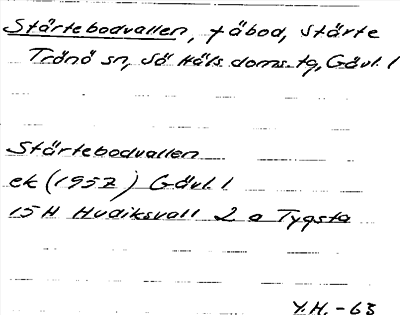 Stärtebodvallen, fäbod, Stärte
Trönö sn, Sö Häls doms. tg, Gävl. l
Stärtebodvallen
ek (1957) Gävl. l
15H Hudiksvall 2 a Tygsta
Y.H. -63